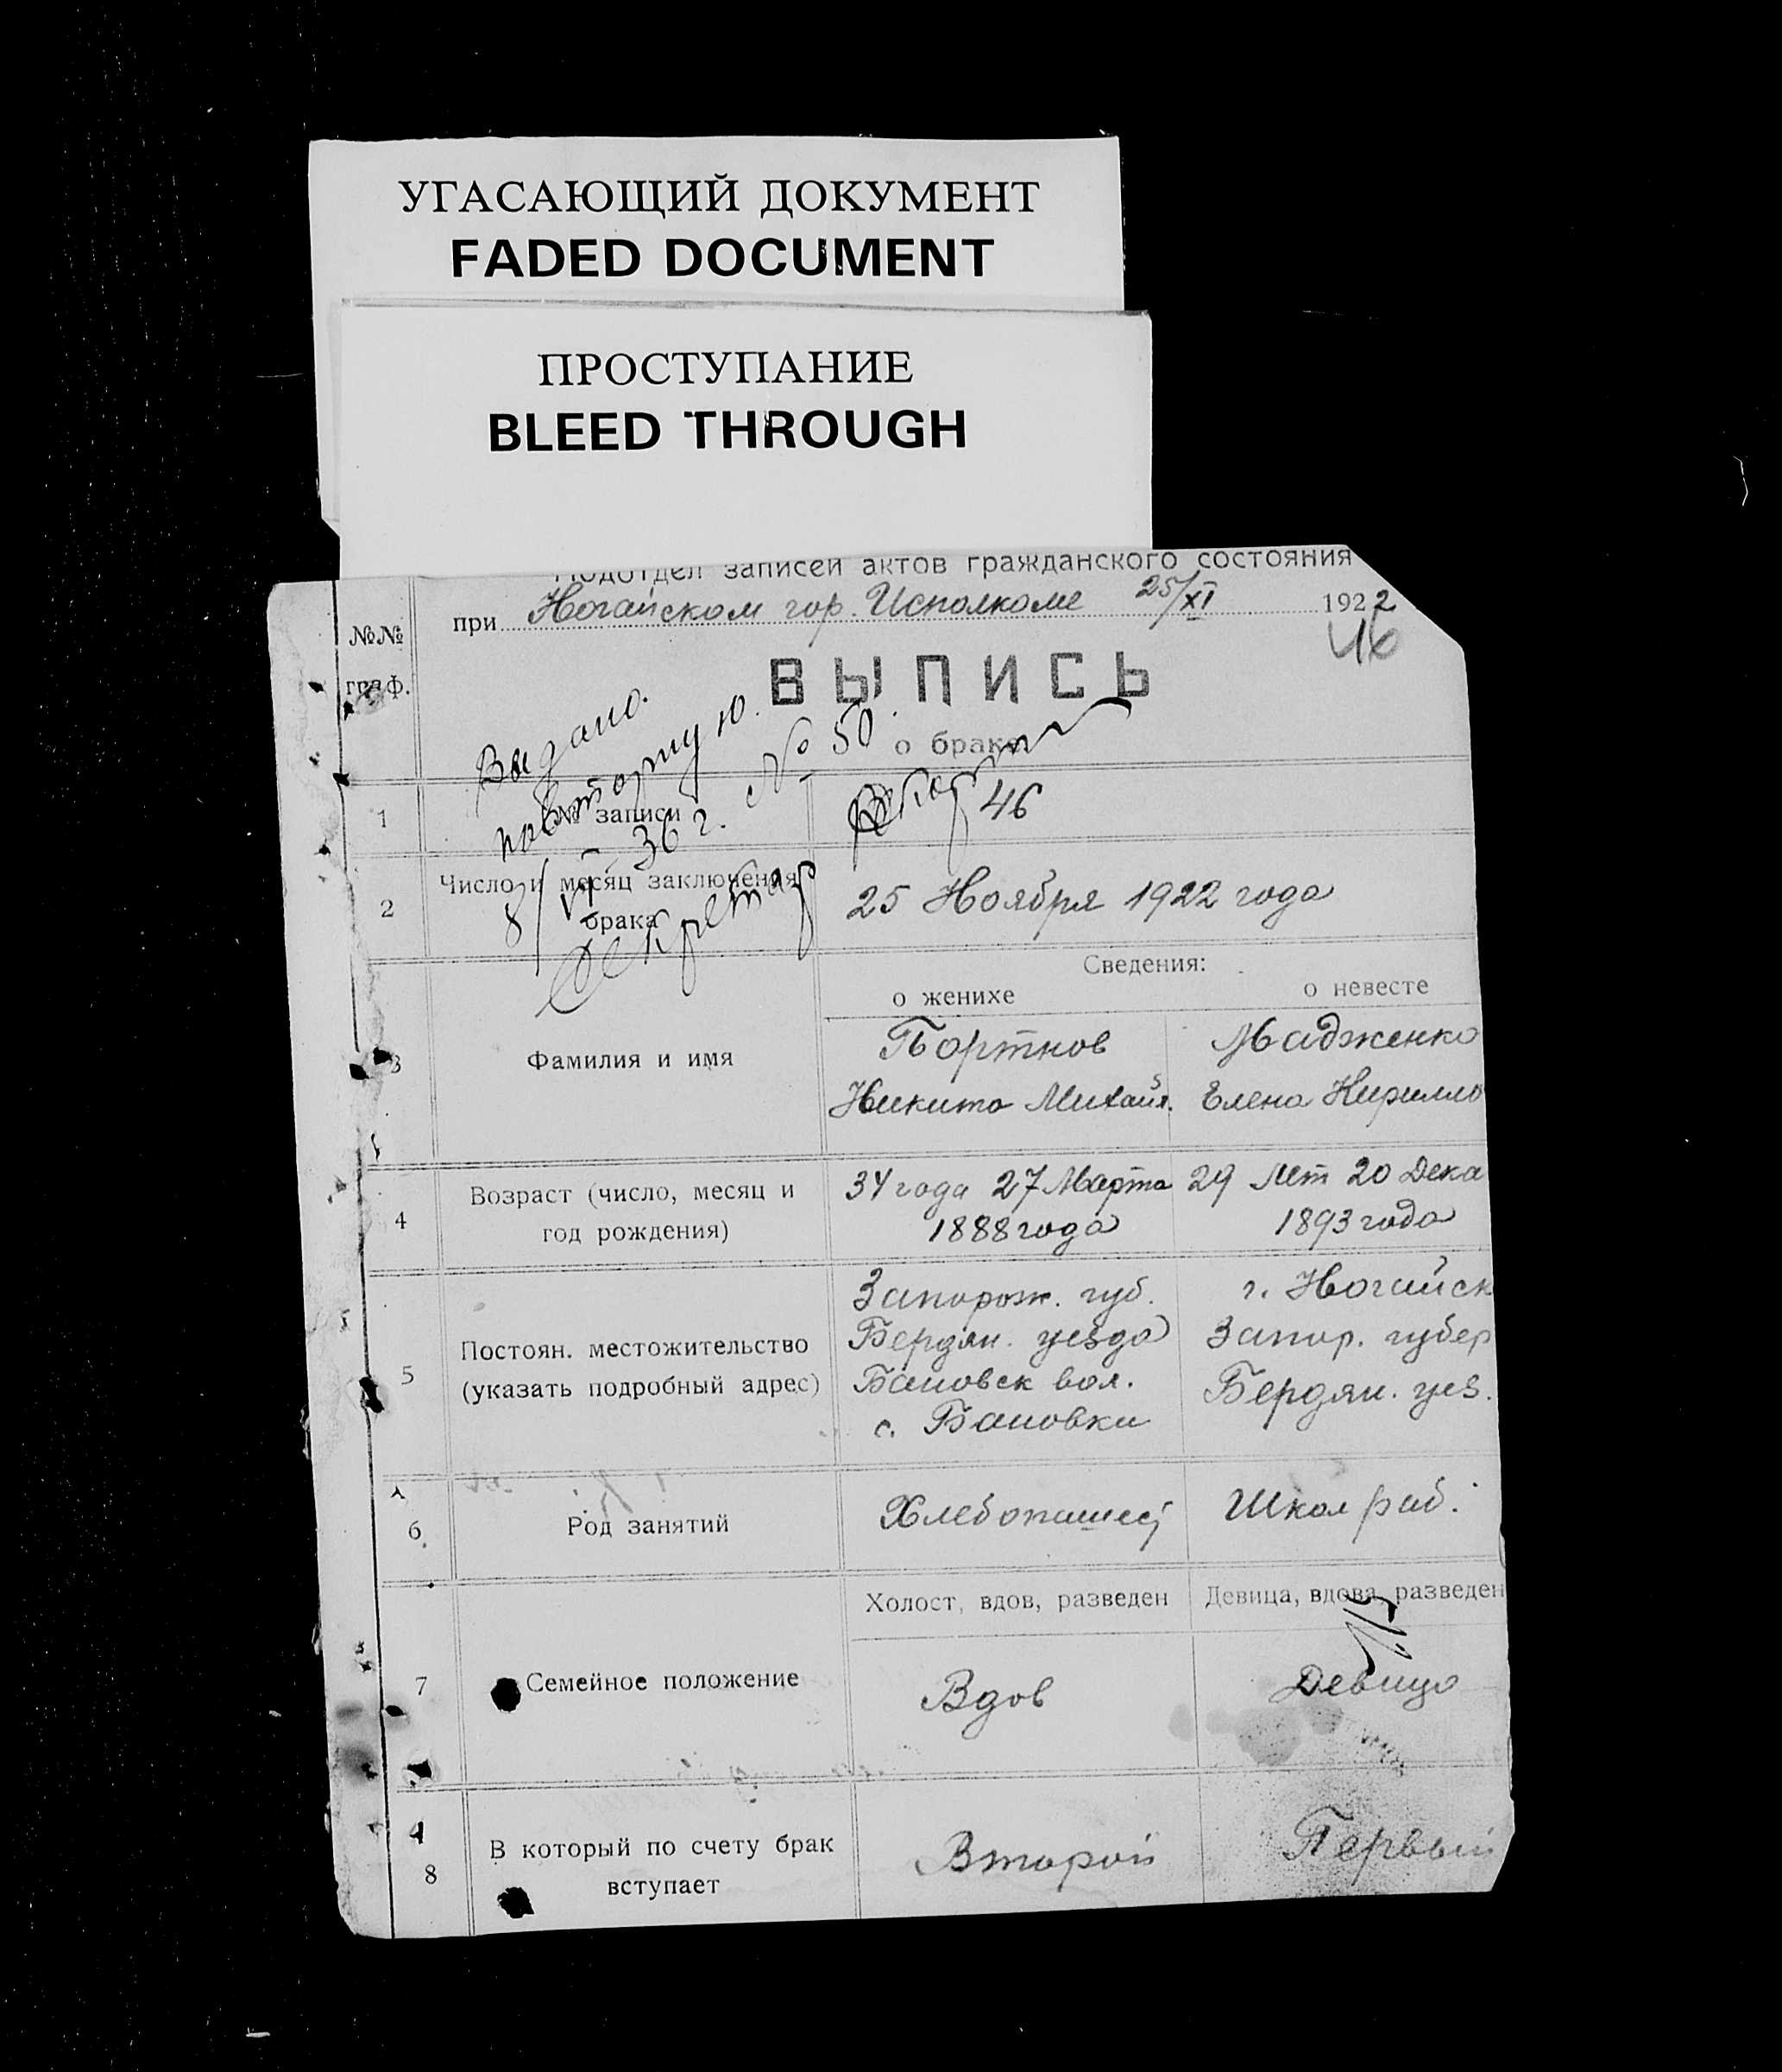 УГАСАЮЩИЙ ДОКУМЕНТ
FADED DOCUMENT
ПРОСТУПАНИЕ
BLEED THROUGH
Подотдел записей актов гражданского состояния
при Ногайском гор. Исполкоме 25/XI 1922
46
№№
граф.
ВЫПИСЬ
о браке
Выдано.
повторную.
8/VI 36 г. № 50.
Секретар
1 № записи 46
2 Число и месяц заключения
брака
25 Ноября 1922 года
Сведения:
о женихе о невесте
3 Фамилия и имя
Портнов Мадженко
Никита Михайл. Елена Кирилло
4 Возраст (число, месяц и
год рождения)
34 года 27 Марта 29 лет 20 Дека
1888 года 1893 года
5 Постоян. местожительство
(указать подробный адрес)
Запорож. губ. г. Ногайск
Бердян. уезда Запор. губер
Бановск вол. Бердян. уез.
с. Бановки
6 Род занятий Хлебопашец Школ раб.
Холост, вдов, разведен Девица, вдова, разведен
7 Семейное положение Вдов Девица
8 В который по счету брак
вступает
Второй Первый